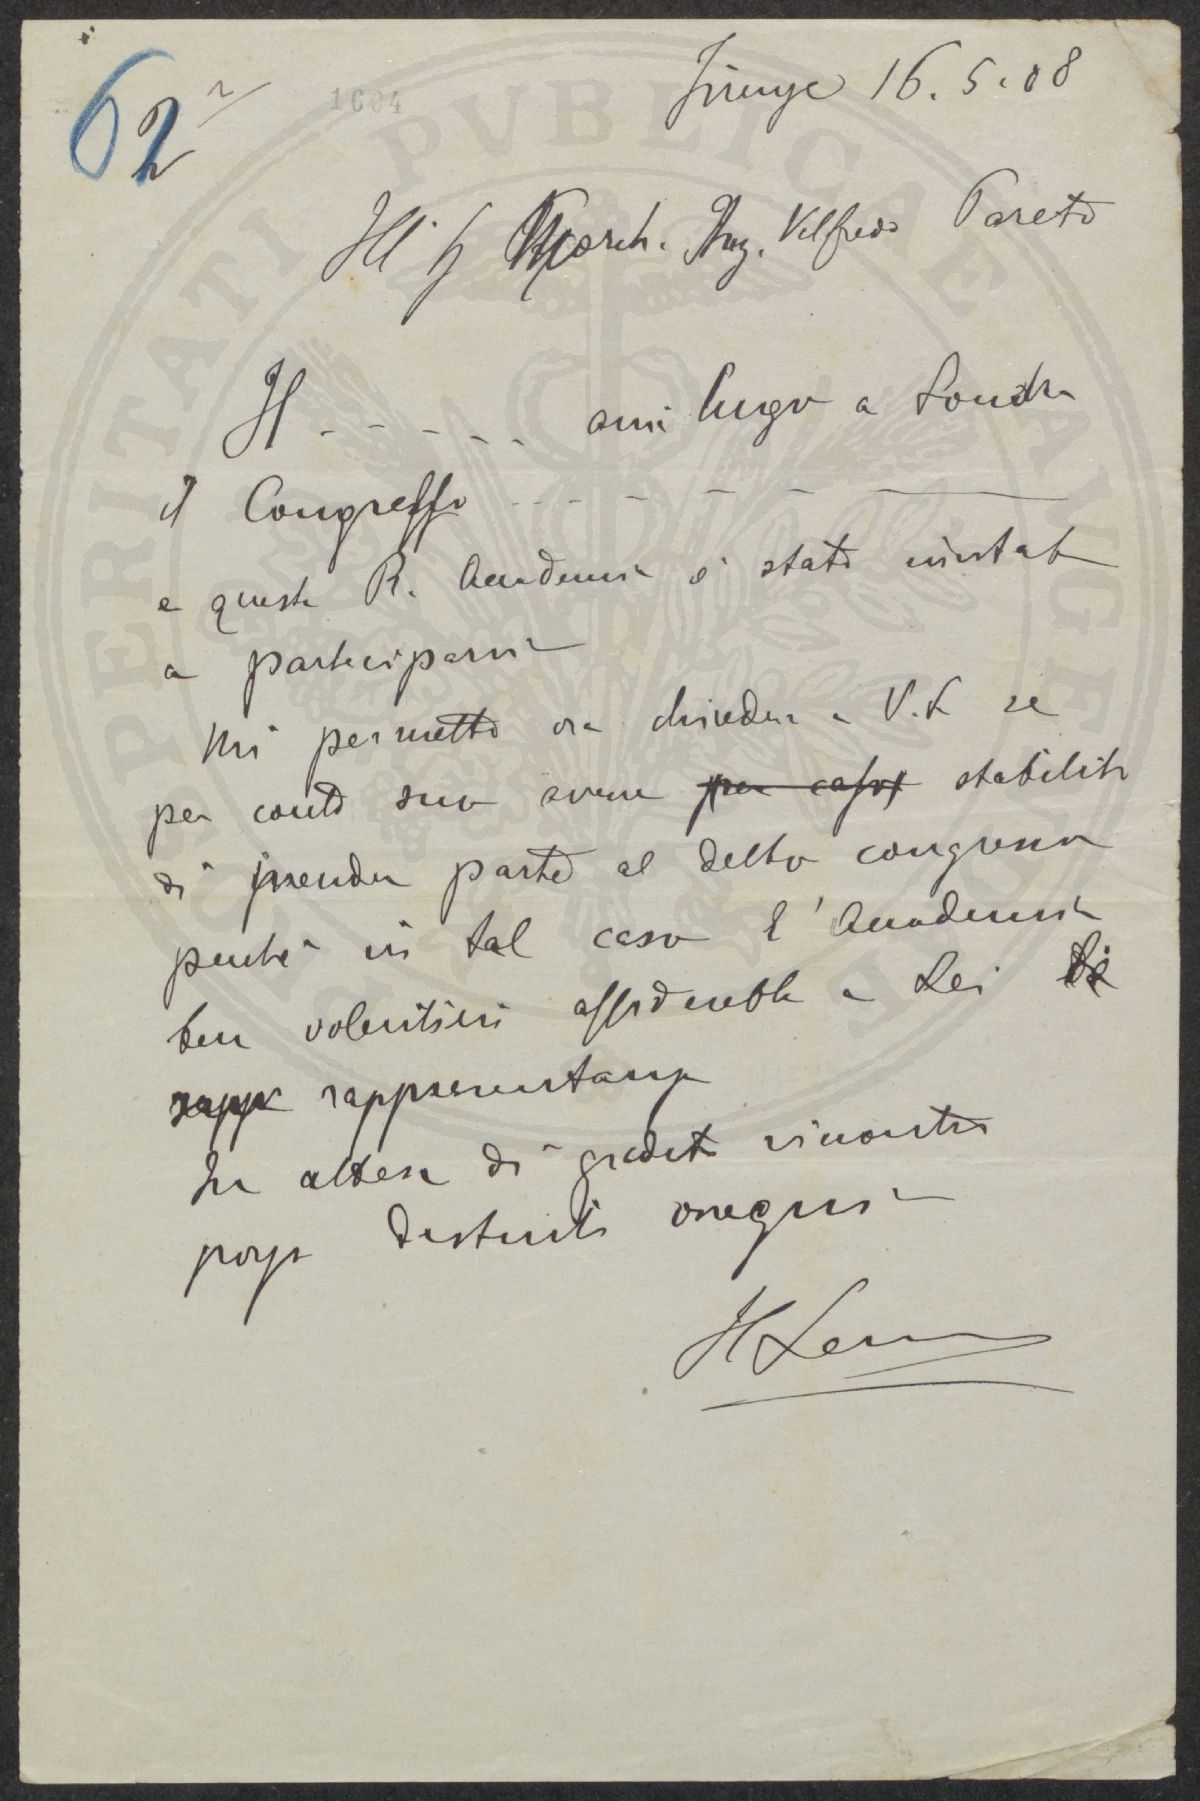 62
1604
Firenze 16.5.08
Ill Sg March. Ing. Vilfredo Pareto
Il - - - - - avrà luogo a Londra
il Congresso - - - - -
e questa R. Accademia è stata invitata
a parteciparvi
Mi permetto ora chiedere a V.S se
per conto suo avesse per caso stabilito
di prender parte al detto congresso
perchè in tal caso l'Accademia
ben volentieri affiderebbe a Lei
rapp rappresentanza
In attesa di gradito riscontro
porgo distinti ossequi
PERITATI PVBLICAE